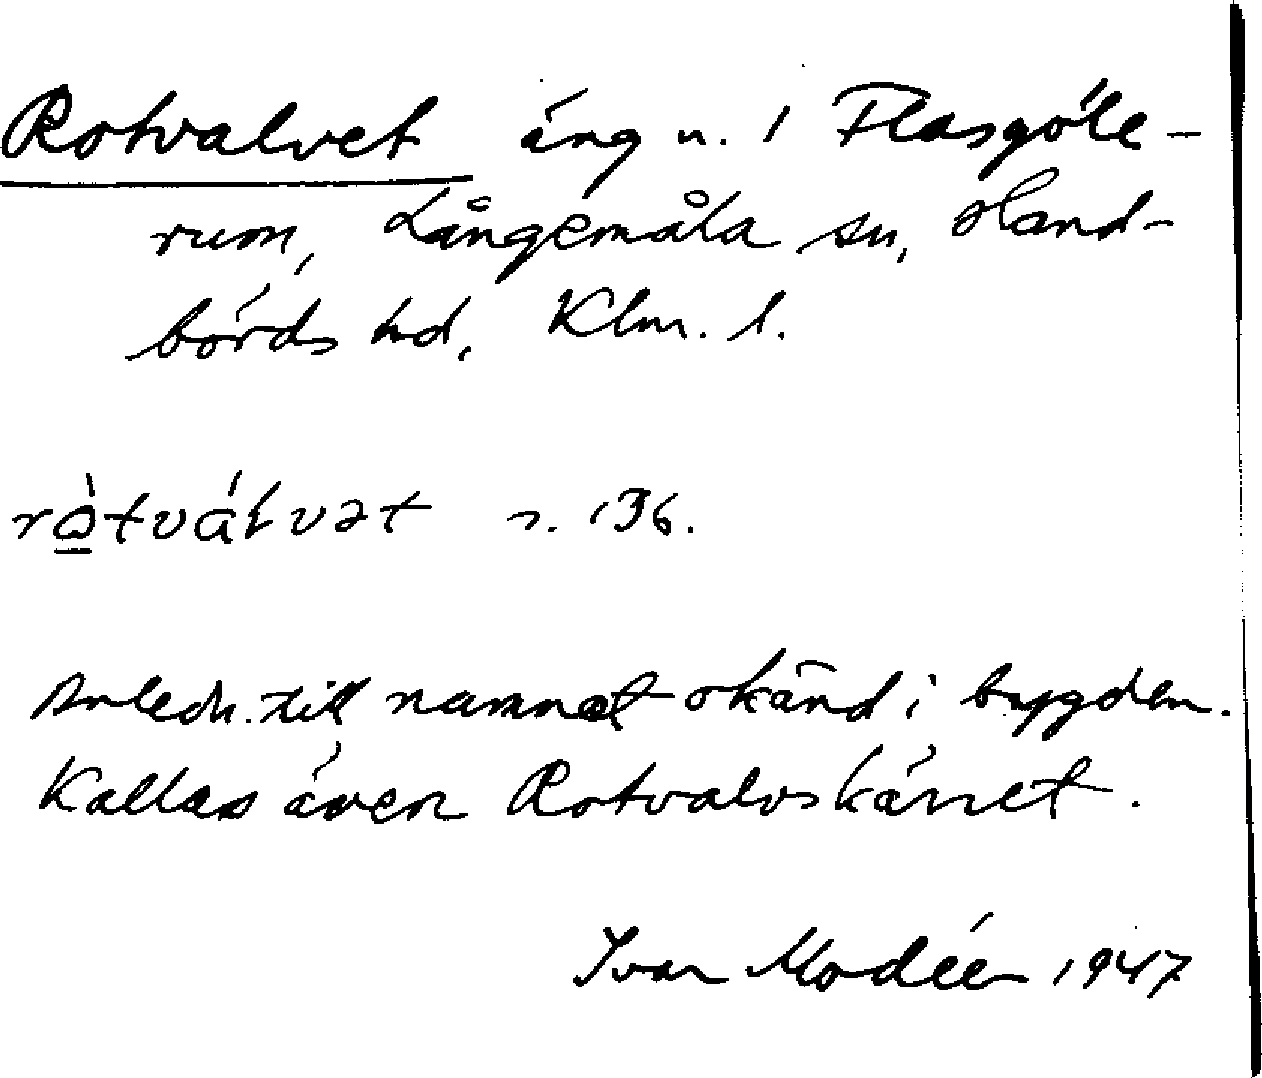 Rotvalvet äng n. 1 Flasgöle-
rum, Långemåla sn, Hand-
börds hd, Klm. l.
rò̲tválvət n. 136.
Anledn. till namnet okänd i bygden.
Kallas även Rotvalvskärret.
Ivar Modéer 1947